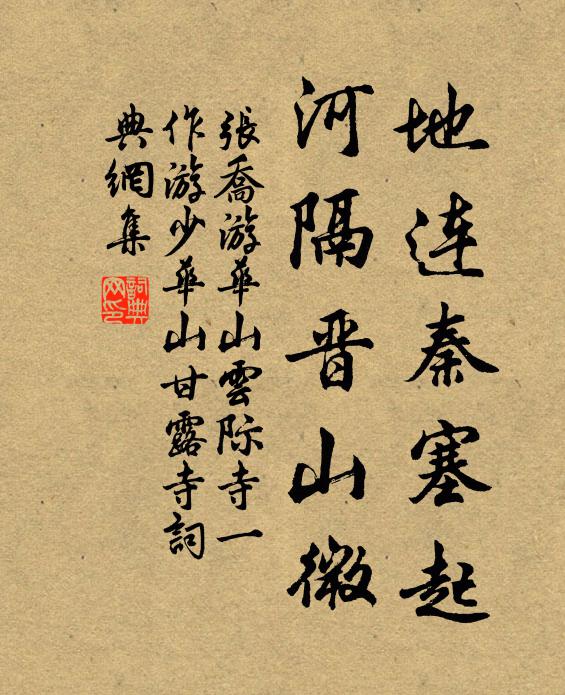 地连秦塞起
河隔晋山微
張喬游華山雲际寺一
作游少華山甘露寺詞
典網集
詞典
网印